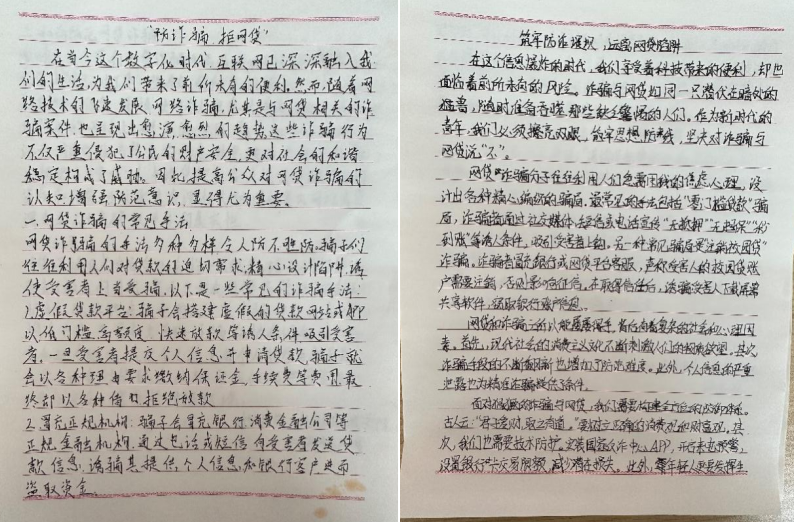 "防诈骗 拒网贷"
在当今这个数字化时代,互联网已深深融入我
们的生活,为我们带来了前所未有的便利。然而,随着网
络技术的飞速发展,网络诈骗尤其是与网贷相关的诈
骗案件也呈现出愈演愈烈的趋势这些诈骗行为
不仅严重侵犯了公民的财产安全,更对社会的和谐
稳定构成了威胁。因此提高公众对网贷诈骗的
认知增强防范意识,显得尤为重要。
一.网贷诈骗的常见手法
网贷诈骗的手法多种多样令人防不胜防,骗子们
往往利用人们对贷款的迫切需求,精心设计陷阱,诱
使受害者上当受骗,以下是一些常见的诈骗手法:
1.虚假贷款平台:骗子会搭建虚假的贷款网站或APP
以低门槛,高额度,快速放款等诱人条件吸引受害
者。一旦受害者提交个人信息并申请贷款,骗子就
会以各种理由要求缴纳保证金,手续费等费用,最
终却以各种借口拒绝放款
2.冒充正规机构:骗子会冒充银行消费金融公司等
正规金融机构,通过电话或短信向受害者发送贷
款信息,诱骗其提供个人信息和银行客户进而
盗取资金
筑牢防诈堤坝,远离网贷陷阱
在这个信息爆炸的时代,我们享受着科技带来的便利,却也
面临着前所未有的风险。诈骗与网贷如同一只潜伏在暗处的
猛兽,随时准备吞噬那些缺乏警惕的人们。作为新时代的
青年,我们必须擦亮双眼,筑牢思想防线,坚决对诈骗与
网贷说"不"。
网贷诈骗分子往往利用人们急需用钱的焦虑心理,设
计出各种精心编织的骗局。最常见的手法包括"零门槛贷款"骗
局,诈骗者通过社交媒体、短信或电话宣传"无抵押""无担保""秒
到账"等诱人条件,吸引受害者上钩。另一种常见骗局是"注销校园贷"
诈骗,诈骗者冒充银行或网贷平台客服,声称受害人的校园贷账
户需要注销,否则影响征信,在取得信任后,诱骗受害人下载屏幕
共享软件,窃取银行账户信息。
网贷和诈骗之所以能屡屡得手,背后有着复杂的社会和心理因
素。首先,现代社会的消费主义文化不断刺激人们的购买欲望,其次
诈骗手段的不断翻新也增加了防范难度。此外,个人信息的严重
泄露也为精准诈骗提供了条件。
面对猖獗的诈骗与网贷,我们需要构建全方位的防护体系。
古人云:"君子爱财,取之有道。"要树立正确的消费观和财富观,其
次,我们也需要技术防护,安装国家反诈中心APP,开启来电预警,
设置银行卡交易限额,减少潜在损失。此外,青年人更要发挥